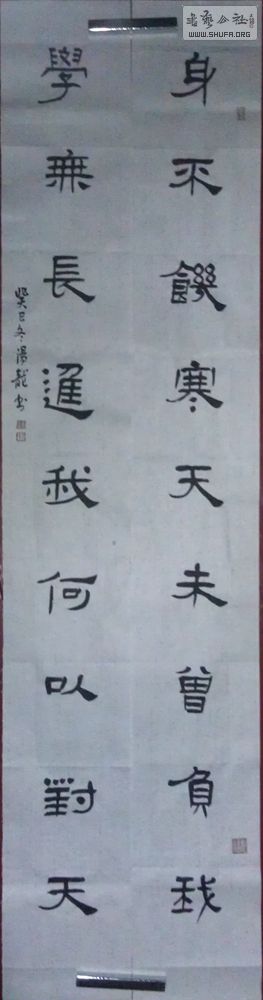 身不饑寒天未曾負我
學無長進我何以對天
癸巳冬湯龍書
書藝公社
www.SHUFA.ORG